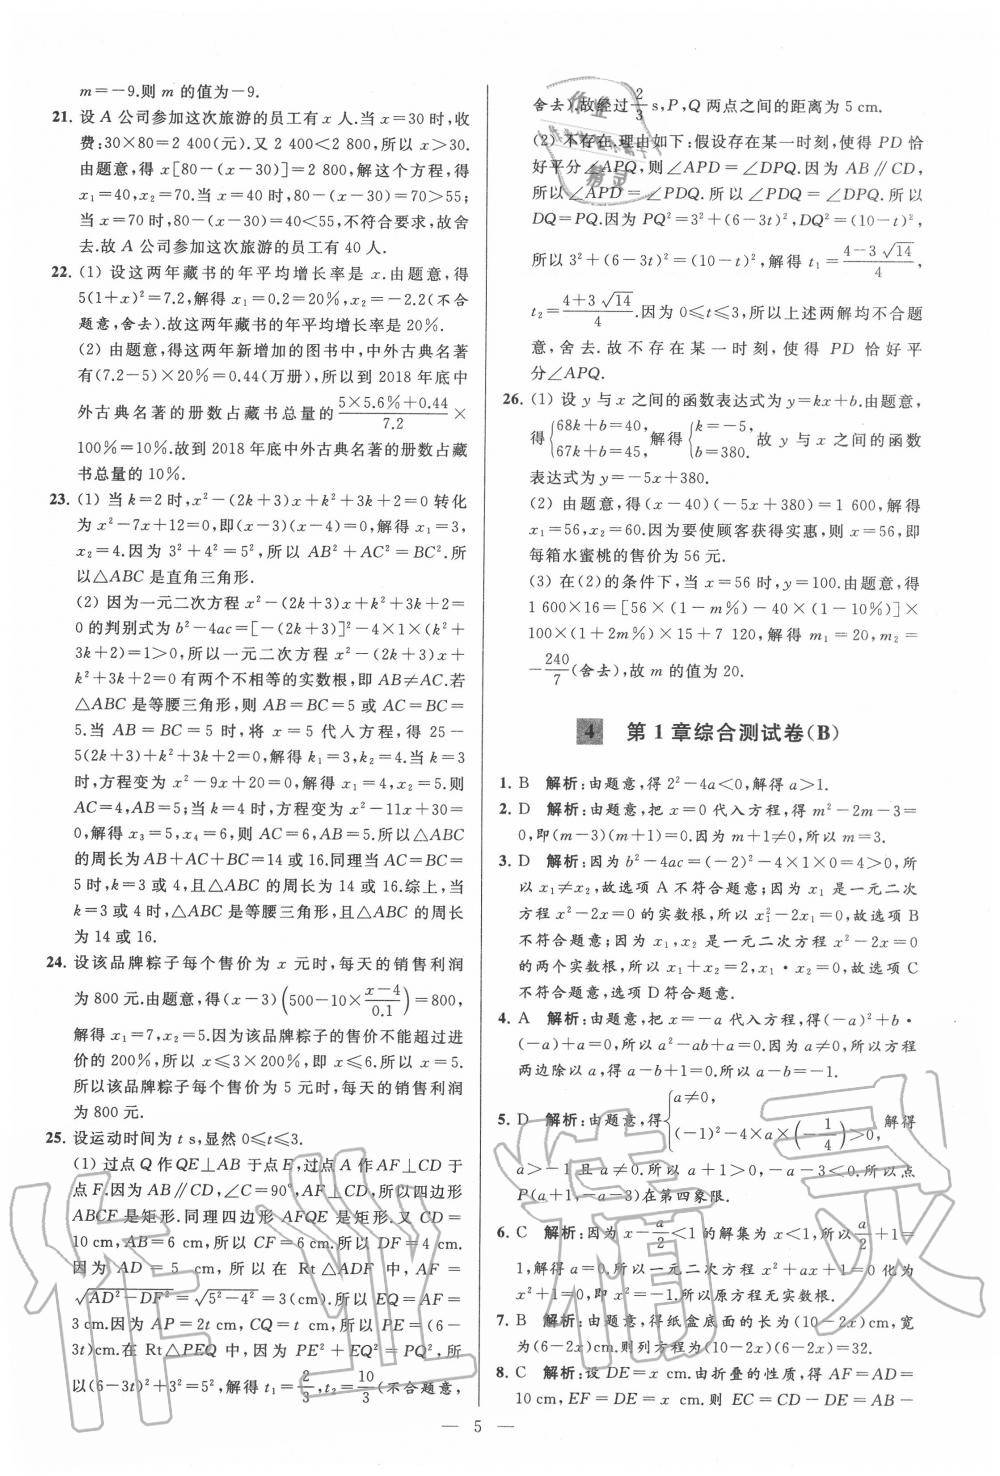 m=-9.则 m 的值为-9.
21. 设 A 公司参加这次旅游的员工有 x 人.当 x=30 时,收
费:30×80=2 400(元).又 2 400<2 800,所以 x>30.
由题意,得 x[80-(x-30)]=2 800,解这个方程,得
x₁=40,x₂=70.当 x=40 时,80-(x-30)=70>55;
当 x=70 时,80-(x-30)=40<55,不符合要求,故舍
去.故 A 公司参加这次旅游的员工有 40 人.
22. (1) 设这两年藏书的年平均增长率是 x.由题意,得
5(1+x)²=7.2,解得 x₁=0.2=20%,x₂=-2.2(不合
题意,舍去).故这两年藏书的年平均增长率是 20%.
(2) 由题意,得这两年新增加的图书中,中外古典名著
有(7.2-5)×20%=0.44(万册),所以到 2018 年底中
外古典名著的册数占藏书总量的 (5×5.6%+0.44)/7.2 ×
100%=10%.故到 2018 年底中外古典名著的册数占藏
书总量的 10%.
23. (1) 当 k=2 时,x²-(2k+3)x+k²+3k+2=0 转化
为 x²-7x+12=0,即(x-3)(x-4)=0,解得 x₁=3,
x₂=4.因为 3²+4²=5²,所以 AB²+AC²=BC².所
以△ABC 是直角三角形.
(2) 因为一元二次方程 x²-(2k+3)x+k²+3k+2=
0 的判别式为 b²-4ac=[-(2k+3)]²-4×1×(k²+
3k+2)=1>0,所以一元二次方程 x²-(2k+3)x+
k²+3k+2=0 有两个不相等的实数根,即 AB≠AC.若
△ABC 是等腰三角形,则 AB=BC=5 或 AC=BC=5.
当 AB=BC=5 时,将 x=5 代入方程,得 25-
5(2k+3)+k²+3k+2=0,解得 k₁=3,k₂=4.当 k=
3 时,方程变为 x²-9x+20=0,解得 x₁=4,x₂=5,则
AC=4,AB=5;当 k=4 时,方程变为 x²-11x+30=
0,解得 x₃=5,x₄=6,则 AC=6,AB=5.所以△ABC
的周长为 AB+AC+BC=14 或 16.同理当 AC=BC=
5 时,k=3 或 4,△ABC 的周长为 14 或 16.综上,当
k=3 或 4 时,△ABC 是等腰三角形,且△ABC 的周长
为 14 或 16.
24. 设该品牌粽子每个售价为 x 元时,每天的销售利润
为 800 元.由题意,得(x-3)(500-10×(x-4)/0.1)=800,
解得 x₁=7,x₂=5.因为该品牌粽子的售价不能超过进
价的 200%,所以 x≤3×200%,即 x≤6.所以 x=5.
所以该品牌粽子每个售价为 5 元时,每天的销售利润
为 800 元.
25. 设运动时间为 t s,显然 0≤t≤3.
(1) 过点 Q 作 QE⊥AB 于点 E,过点 A 作 AF⊥CD 于
点 F.因为 AB∥CD,∠C=90°,AF⊥CD,所以四边形
ABCF 是矩形.同理四边形 AFQE 是矩形.又 CD=
10 cm,AB=6 cm,所以 CF=6 cm.所以 DF=4 cm.
因为 AD=5 cm,所以在 Rt△ADF 中,AF=
√(AD²-DF²)=√(5²-4²)=3(cm).所以 EQ=AF=
3 cm.因为 AP=2t cm,CQ=t cm,所以 PE=(6-
3t)cm.在 Rt△PEQ 中,因为 PE²+EQ²=PQ²,所
以(6-3t)²+3²=5²,解得 t₁=2/3,t₂=10/3(不合题意,
舍去).故经过 2/3 s,P,Q 两点之间的距离为 5 cm.
(2) 不存在.理由如下:假设存在某一时刻,使得 PD 恰
好平分∠APQ,则∠APD=∠DPQ.因为 AB∥CD,
所以∠APD=∠PDQ.所以∠PDQ=∠DPQ.所以
DQ=PQ.因为 PQ²=3²+(6-3t)²,DQ²=(10-t)²,
所以 3²+(6-3t)²=(10-t)²,解得 t₁=(4-3√14)/4,
t₂=(4+3√14)/4.因为 0≤t≤3,所以上述两解均不合题
意,舍去.故不存在某一时刻,使得 PD 恰好平
分∠APQ.
26. (1) 设 y 与 x 之间的函数表达式为 y=kx+b.由题意,
得{68k+b=40, 67k+b=45, 解得{k=-5, b=380. 故 y 与 x 之间的函数
表达式为 y=-5x+380.
(2) 由题意,得(x-40)(-5x+380)=1 600,解得
x₁=56,x₂=60.因为要使顾客获得实惠,则 x=56,所以
每箱水蜜桃的售价为 56 元.
(3) 在(2)的条件下,当 x=56 时,y=100.由题意,得
1 600×16=[56×(1-m%)-40×(1-10%)]×
100×(1+2m%)×15+7 120,解得 m₁=20,m₂=
-240/7(舍去),故 m 的值为 20.
4 第 1 章综合测试卷(B)
1. B 解析:由题意,得 2²-4a<0,解得 a>1.
2. D 解析:由题意,把 x=0 代入方程,得 m²-2m-3=
0,即(m-3)(m+1)=0.因为 m+1≠0,所以 m=3.
3. D 解析:因为 b²-4ac=(-2)²-4×1×0=4>0,所
以 x₁≠x₂,故选项 A 不符合题意;因为 x₁ 是一元二次
方程 x²-2x=0 的实数根,所以 x₁²-2x₁=0,故选项 B
不符合题意;因为 x₁,x₂ 是一元二次方程 x²-2x=0
的两个实数根,所以 x₁+x₂=2,x₁·x₂=0,故选项 C
不符合题意,选项 D 符合题意.
4. A 解析:由题意,把 x=-a 代入方程,得(-a)²+b·
(-a)+a=0,所以 a²-ab+a=0.因为 a≠0,所以方程
两边除以 a,得 a-b+1=0,所以 a-b=-1.
5. D 解析:由题意,得{a≠0, (-1)²-4×a×(-1/4)>0, 解得
a>-1 且 a≠0,所以 a+1>0,-a-3<0,所以点
P(a+1,-a-3)在第四象限.
6. C 解析:因为 x-a/2<1 的解集为 x<1,所以 a/2+1=
1,解得 a=0.所以一元二次方程 x²+ax+1=0 化为
x²+1=0,即 x²=-1.所以原方程无实数根.
7. B 解析:由题意,得纸盒底面的长为(10-2x)cm,宽
为(6-2x)cm.则列方程为(10-2x)(6-2x)=32.
8. C 解析:设 DE=x cm.由折叠的性质,得 AF=AD=
10 cm,EF=DE=x cm,则 EC=CD-DE=AB-
— 5 —
作业精灵